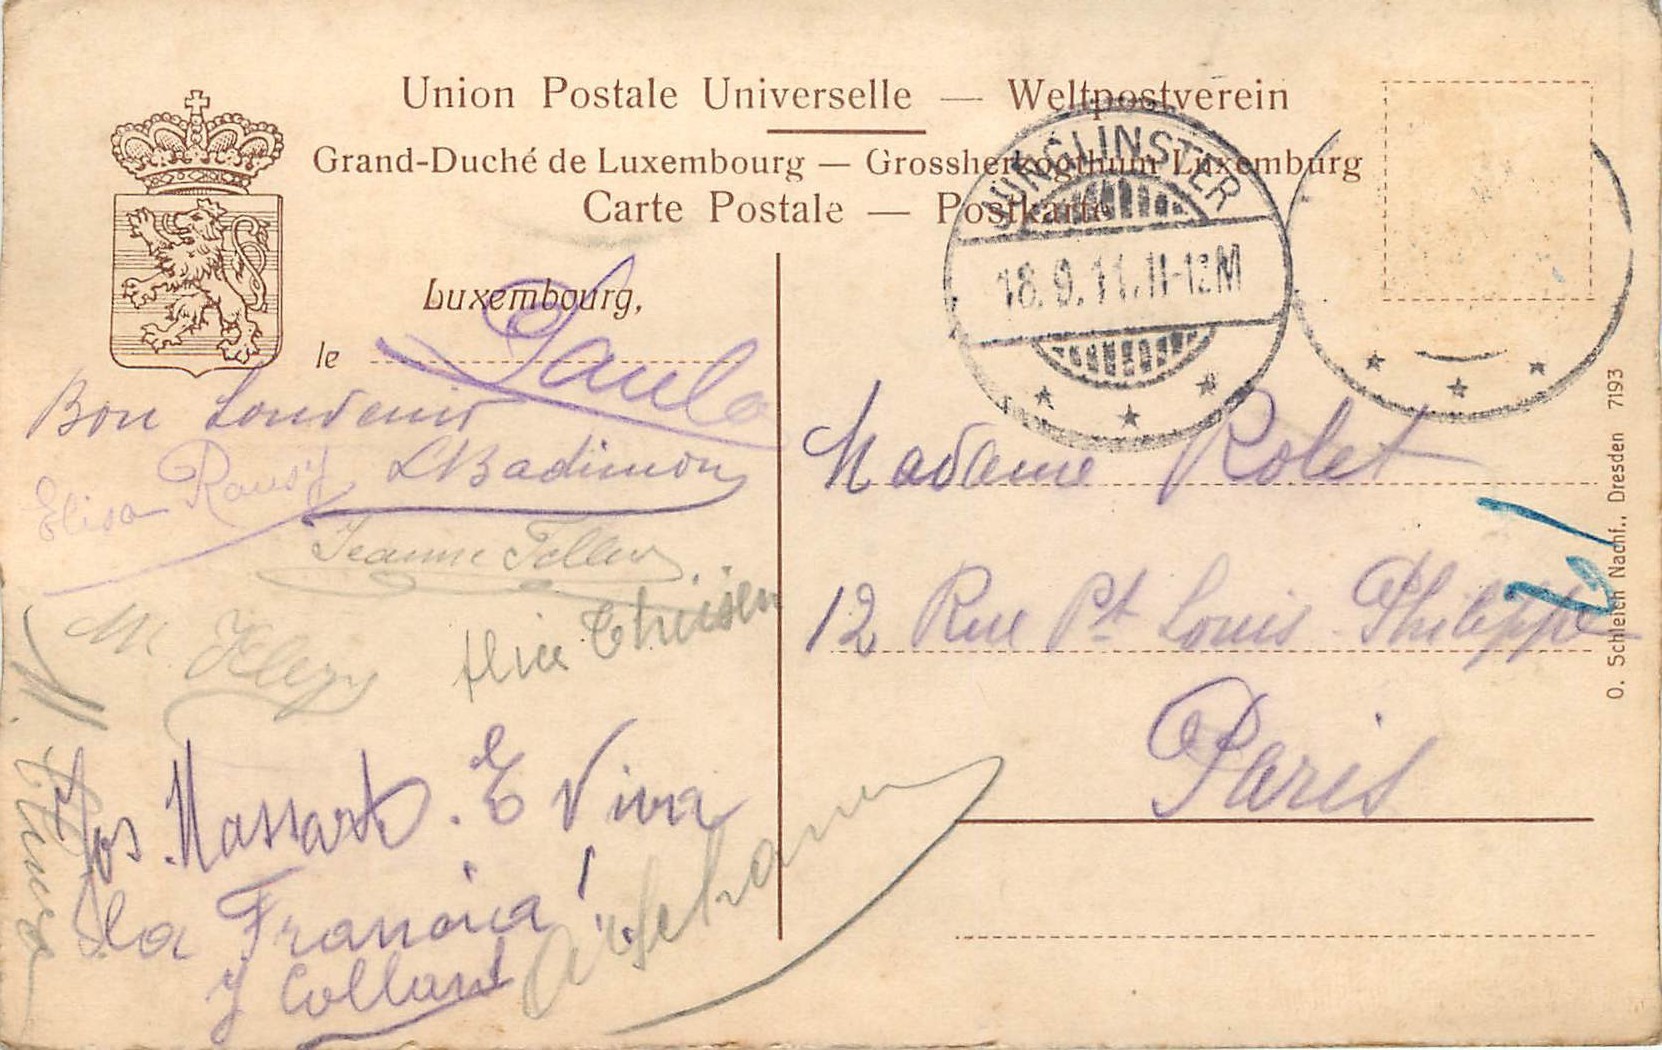 Union Postale Universelle — Weltpostverein
Grand-Duché de Luxembourg — Grossherzogthum Luxemburg
Carte Postale — Postkarte
JUNGLINSTER
18.9.11.11-12M
Luxembourg,
le
Paula
Bon Souvenir
LBadimon
Elisa
Jeanne
M.
Alice
Jos Massard. E Viva
la Francia!
J Collard
Madame Rolet
12 Rue Pt Louis-Philippe
Paris
O. Schleich Nachf., Dresden 7193